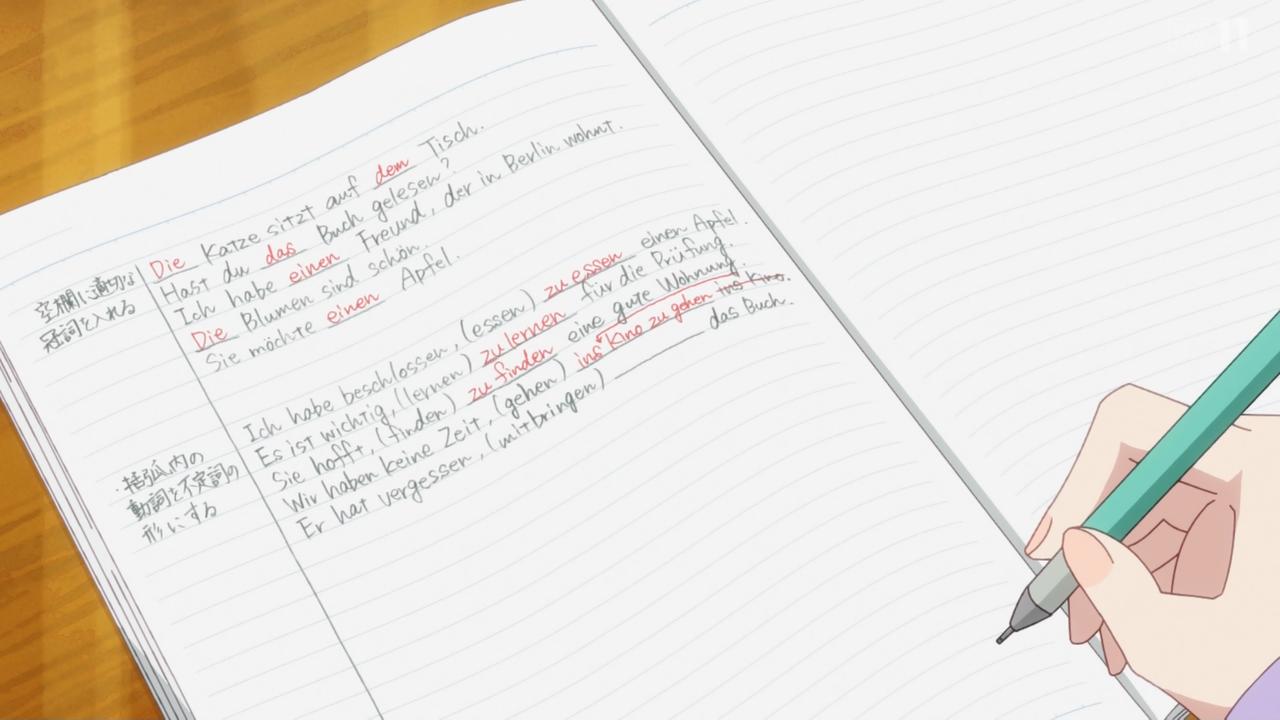 空欄に適切な
冠詞を入れる
Die Katze sitzt auf dem Tisch.
Hast du das Buch gelesen?
Ich habe einen Freund, der in Berlin wohnt.
Die Blumen sind schön.
Sie möchte einen Apfel.
・括弧内の
動詞を不定詞の
形にする
Ich habe beschlossen, (essen) zu essen einen Apfel.
Es ist wichtig, (lernen) zu lernen für die Prüfung.
Sie hofft, (finden) zu finden eine gute Wohnung.
Wir haben keine Zeit, (gehen) ins Kino zu gehen ins Kino.
Er hat vergessen, (mitbringen) ______ das Buch.